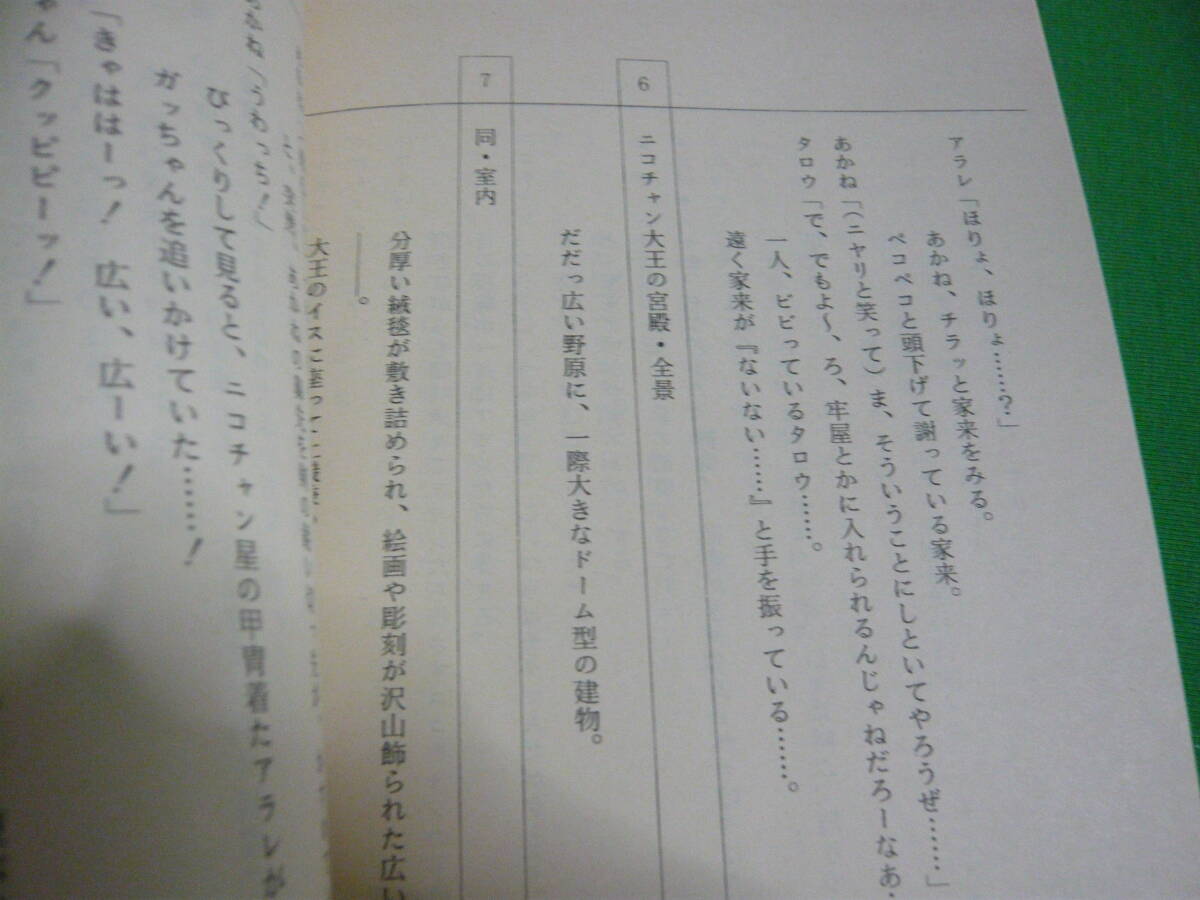 アラレ「ほりょ、ほりょ……?」
あかね、チラッと家来をみる。
ペコペコと頭下げて謝っている家来。
あかね「(ニヤリと笑って)ま、そういうことにしといてやろうぜ……」
タロウ「で、でもよ〜、ろ、牢屋とかに入れられるんじゃねだろーなあ
一人、ビビっているタロウ……。
遠く家来が『ないない……』と手を振っている……。
6 ニコチャン大王の宮殿・全景
だだっ広い野原に、一際大きなドーム型の建物。
7 同・室内
分厚い絨毯が敷き詰められ、絵画や彫刻が沢山飾られた広い
――。
大王のイスに座って
「うわっち!」
びっくりして見ると、ニコチャン星の甲冑着たアラレが
がっちゃんを追いかけていた……!
「きゃははーっ! 広い、広ーい!」
ゃん「クッピピーッ!」